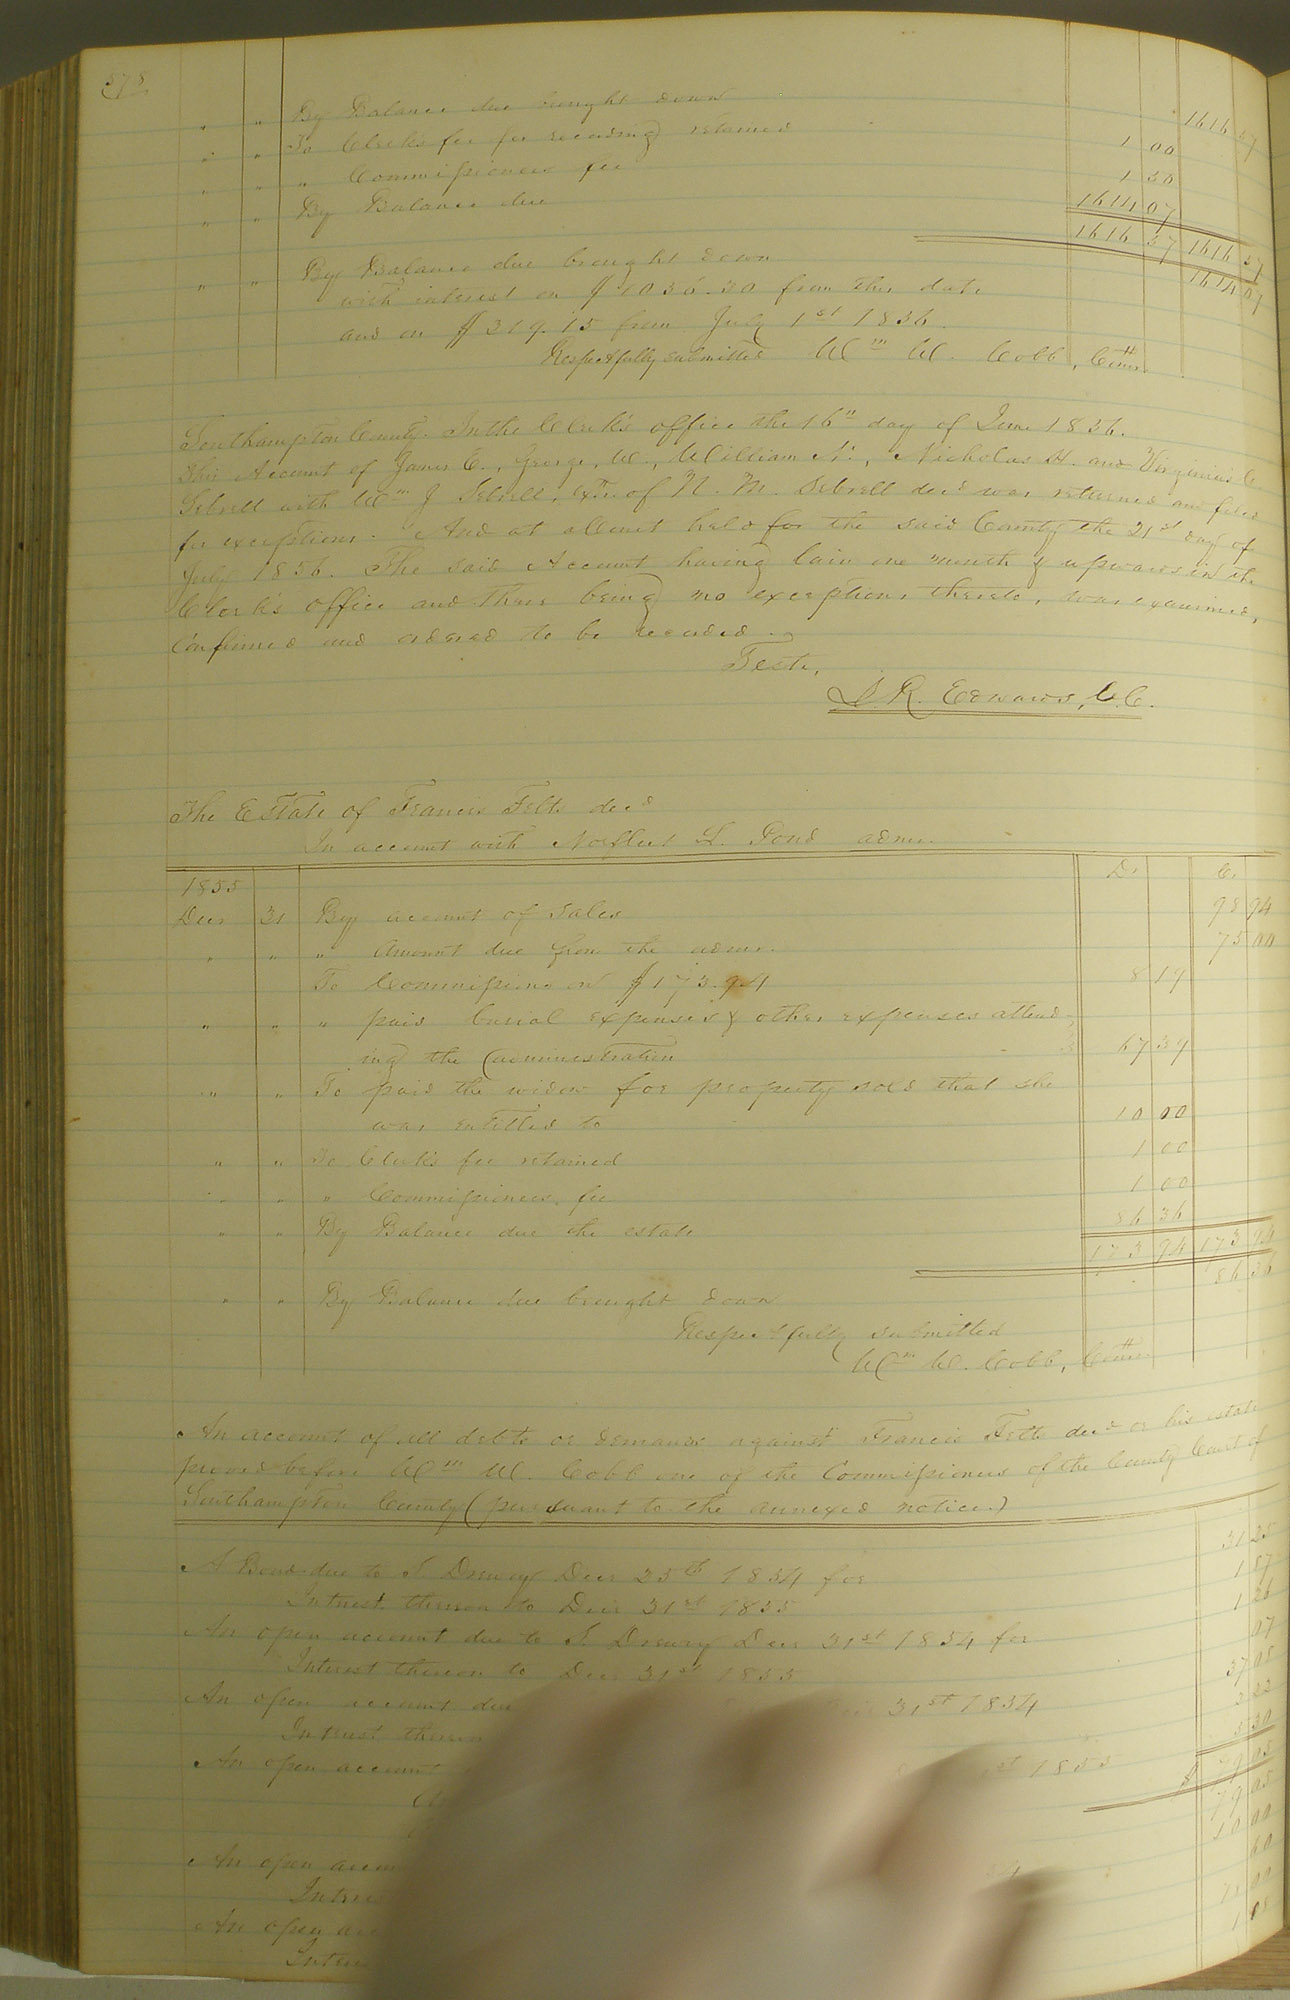 578
" " By Balance due brought down 1616 37
" " To Clerk's fee for recording retained 1 00
" " " Commissioners fee 1 30
" " By Balance due 1614 07
1616 37 1616 37
" " By Balance due brought down 1614 07
with interest on $ from this date
and on $319.15 from July 1st 1856.
Respectfully submitted Wm W. Cobb, Comr.
Southampton County. In the Clerk's office the 16th day of June 1856.
This Account of James E., George, W., William N., Nicholas H. and Virginius
Sebrell with Wm J Sebrell, exr. of N. M. Sebrell decd was returned and filed
for exceptions. And at a Court held for the said County the 21st day of
July 1856. The said Account having lain one month & upwards in the
Clerk's office and there being no exceptions thereto, was examined,
Confirmed and ordered to be recorded.
Teste,
L. R. Edwards, C.C.
The Estate of Francis Felts decd
In account with Norfleet L. Pond admr.
Dr Cr
1855
Decr 31 By account of sales 98 94
" " " Amount due from the admr. 75 00
To Commissions on $173.94 8 19
" " " paid burial expenses & other expenses attend-
ing the administration 67 39
" " To paid the widow for property sold that she
was entitled to 10 00
" " To Clerk's fee retained 1 00
" " " Commissioners fee 1 00
" " By Balance due the estate 86 36
173 94 173 94
" " By Balance due brought down 86 36
Respectfully submitted
Wm W. Cobb, Comr.
An account of all debts or demands against Francis Felts decd or his estate
proved before Wm W. Cobb one of the Commissioners of the County Court of
Southampton County (pursuant to the annexed notice.)
A Bond due to J. Drewry Decr 25th 1854 for 31 25
Interest thereon to Decr 31st 1855 1 87
An open account due to J. Drewry Decr 31st 1854 for 1 26
Interest thereon to Decr 31st 1855 07
An open account due 31st 1854 37 08
Interest thereon 2 22
An open account 1855 5 30
$ 79 05
79 05
10 00
An open 60
Inter
An open
Inter